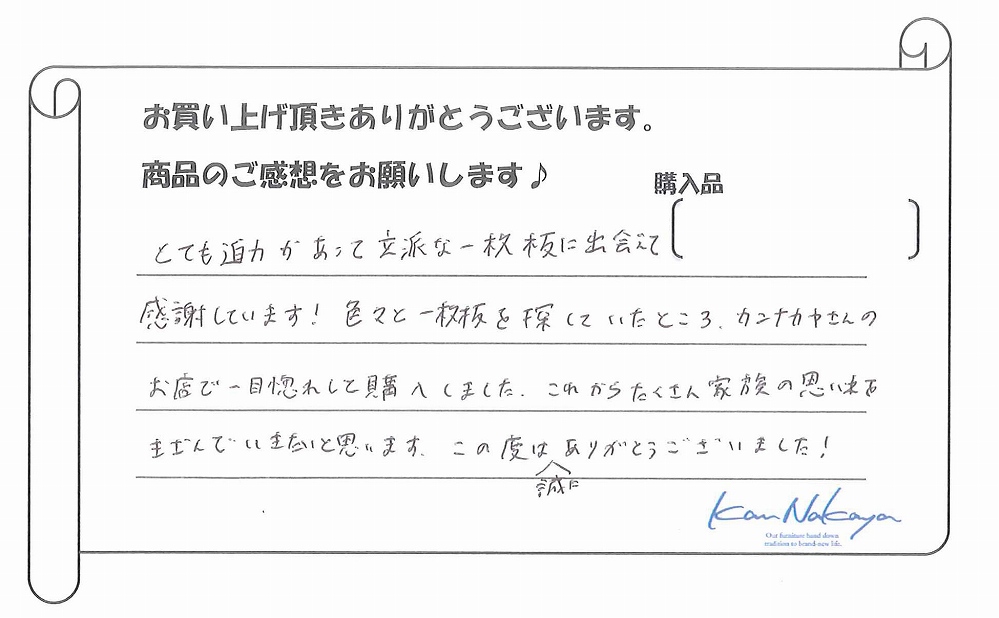 お買い上げ頂きありがとうございます。
商品のご感想をお願いします♪
購入品
とても迫力があって立派な一枚板に出会えて
感謝しています！色々と一枚板を探していたところ、カンナカヤさんの
お店で一目惚れして購入しました。これからたくさん家族の思い出を
きざんでいきたいと思います。この度は誠にありがとうございました！
KanNakaya
Our furniture hand down
tradition to brand-new life.